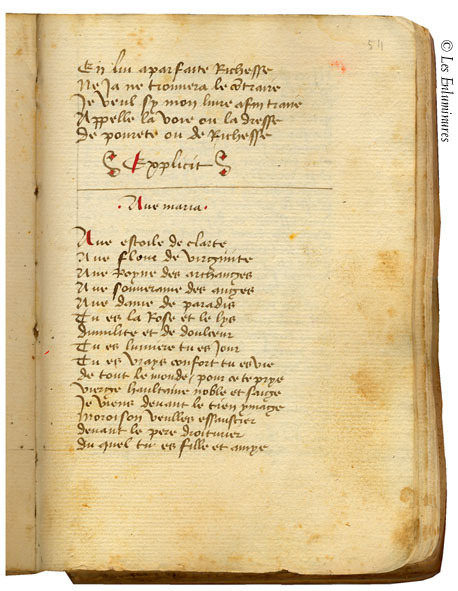 54
En lui a parfaite Richesse
Ne Ja ne trouvera le ctraire
Je veul cy mon livre afin traire
Appelle la voie ou la dresse
De povrete ou de Richesse
Explicit
Ave maria
Ave estoile de clarte
Ave flour de virginite
Ave Royne des archanges
Ave souveraine des anges
Ave dame de paradis
Tu es la Rose et le lys
dumilite et de doulceur
Tu es lumiere tu es Jour
Tu es vrays confort tu es vie
de tout le monde pour ce te prye
vierge haultaine noble et saige
Je viens devant le tien ymage
Moroison veulles essaulcier
devant le pere droiturier
du quel tu es fille et amye
© Les Enluminures